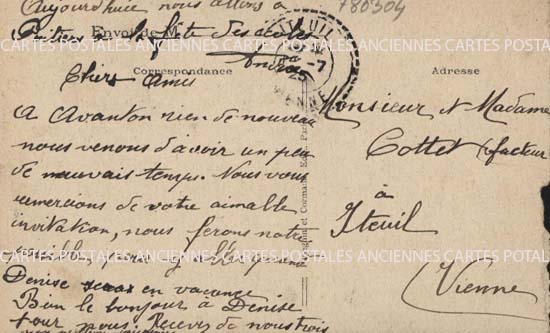 Aujourd'hui nous allons à
Poitiers la fête des écoles
Envoi de M
780304
ITEUIL
-7
25
VIENNE
CARTES POSTALES ANCIENNES CARTES POSTALES ANCIENNES CARTES POSTALES
Correspondance
Adresse
Chers Amis
A Avanton rien de nouveau
nous venons d'avoir un peu
de mauvais temps. Nous vous
remercions de votre aimable
invitation, nous ferons notre
possible pour y aller quand
Denise sera en vacance
Bien le bonjour à Denise
pour nous. Recevez de nous trois
Monsieur et Madame
Cottet (facteur
à
Iteuil
(Vienne
CARTES POSTALES ANCIENNES CARTES POSTALES ANCIENNES CARTES POSTALES